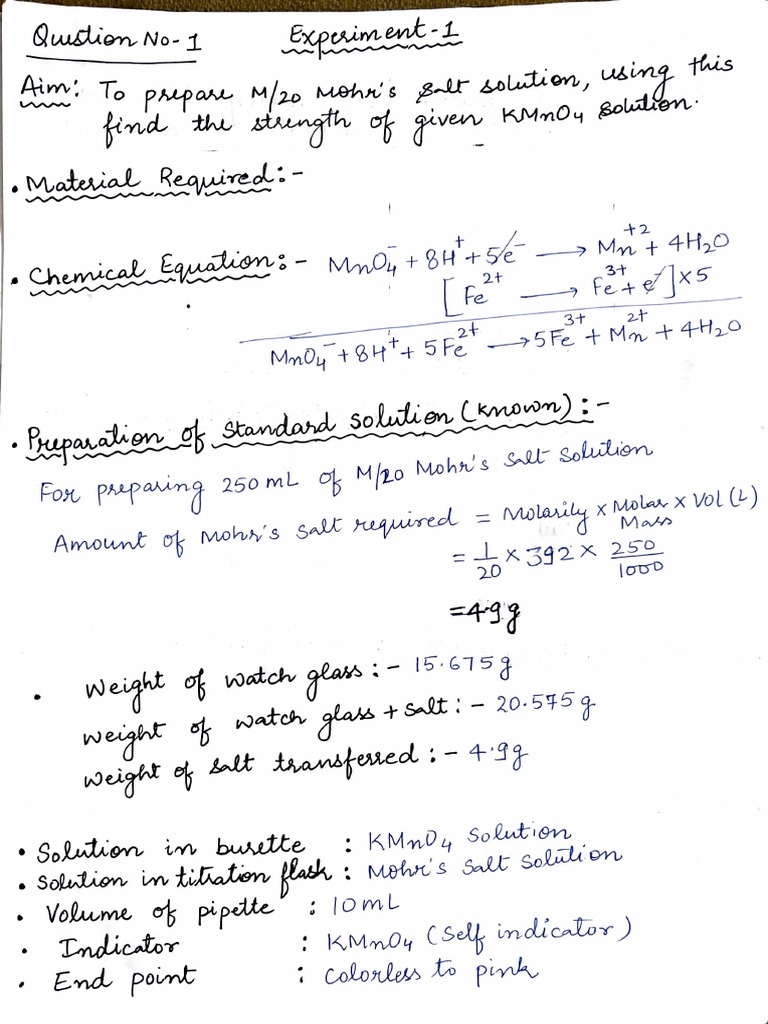 Question No-1 Experiment-1
Aim: To prepare M/20 Mohr's Salt solution, using this
find the strength of given KMnO4 solution.
• Material Required:-
• Chemical Equation:- MnO4⁻ + 8H⁺ + 5e⁻ ⟶ Mn⁺² + 4H2O
[Fe²⁺ ⟶ Fe³⁺ + e⁻] × 5
MnO4⁻ + 8H⁺ + 5Fe²⁺ ⟶ 5Fe³⁺ + Mn²⁺ + 4H2O
• Preparation of standard solution (known):-
For preparing 250 mL of M/20 Mohr's Salt Solution
Amount of Mohr's salt required = Molarity × Molar Mass × Vol (L)
= 1/20 × 392 × 250/1000
= 4.9 g
• Weight of watch glass :- 15.675 g
weight of watch glass + salt :- 20.575 g
weight of salt transferred :- 4.9 g
• Solution in burette : KMnO4 Solution
• Solution in titration flask : Mohr's Salt Solution
• Volume of pipette : 10 mL
• Indicator : KMnO4 (Self indicator)
• End point : Colorless to pink